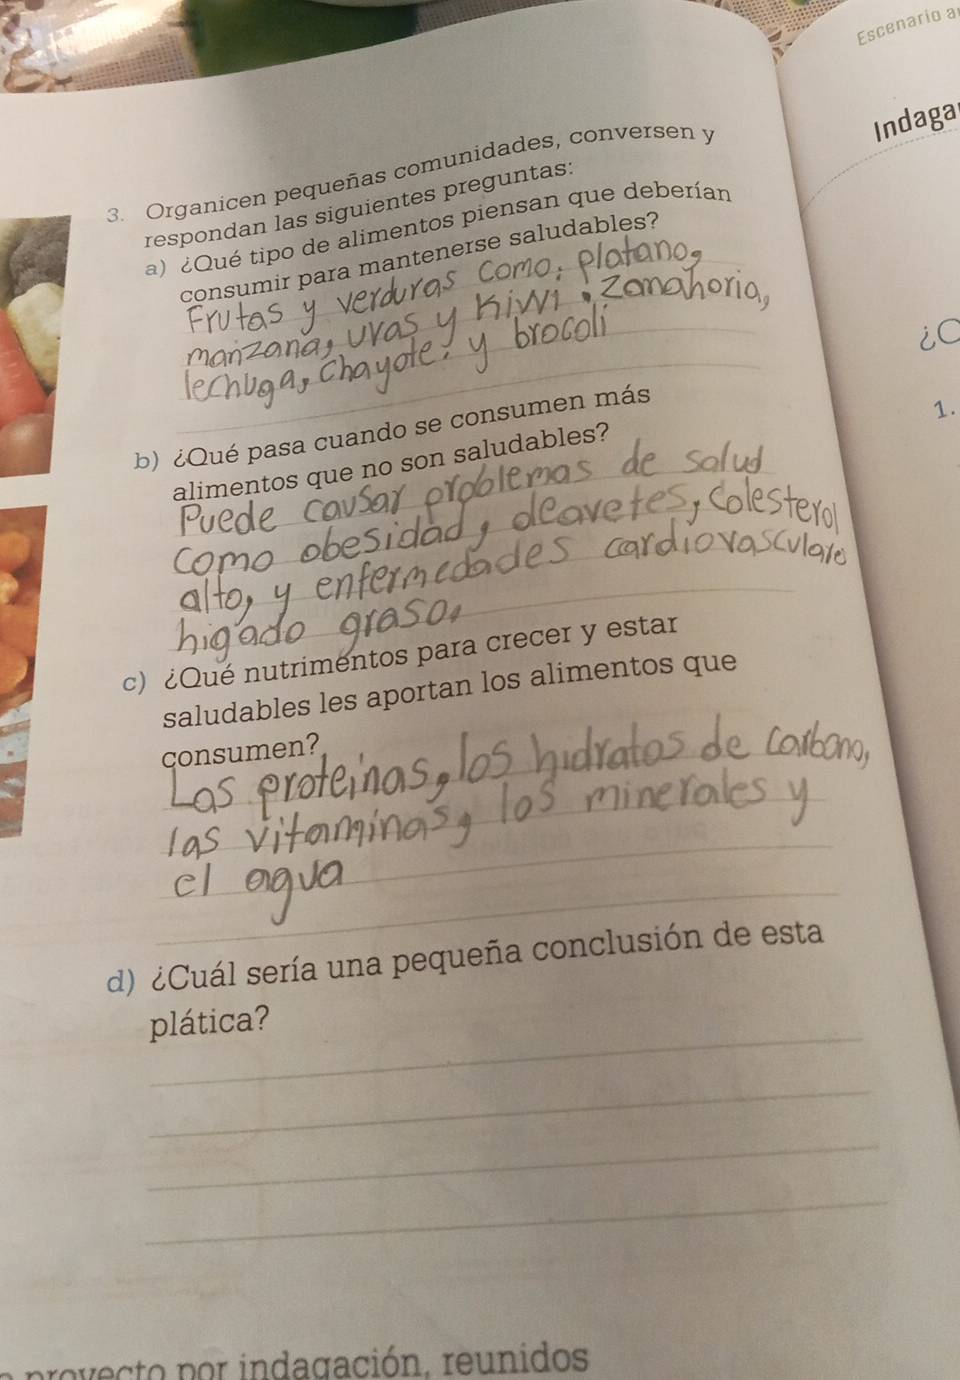 Escenario a
Indaga
3. Organicen pequeñas comunidades, conversen y
respondan las siguientes preguntas:
a) ¿Qué tipo de alimentos piensan que deberían
consumir para mantenerse saludables?
Frutas y verduras como: platano,
manzana, uvas y kiwi. zanahoria,
lechuga, chayote, y brocoli
b) ¿Qué pasa cuando se consumen más
alimentos que no son saludables?
Puede causar problemas de salud
como obesidad, deavetes, colesterol
alto, y enfermedades cardiovasculare
higado graso.
c) ¿Qué nutrimentos para crecer y estar
saludables les aportan los alimentos que
consumen?
Las proteinas, los hidratos de carbono,
las vitaminas, los minerales y
el agua
d) ¿Cuál sería una pequeña conclusión de esta
plática?
proyecto por indagación, reunidos
¿
1.